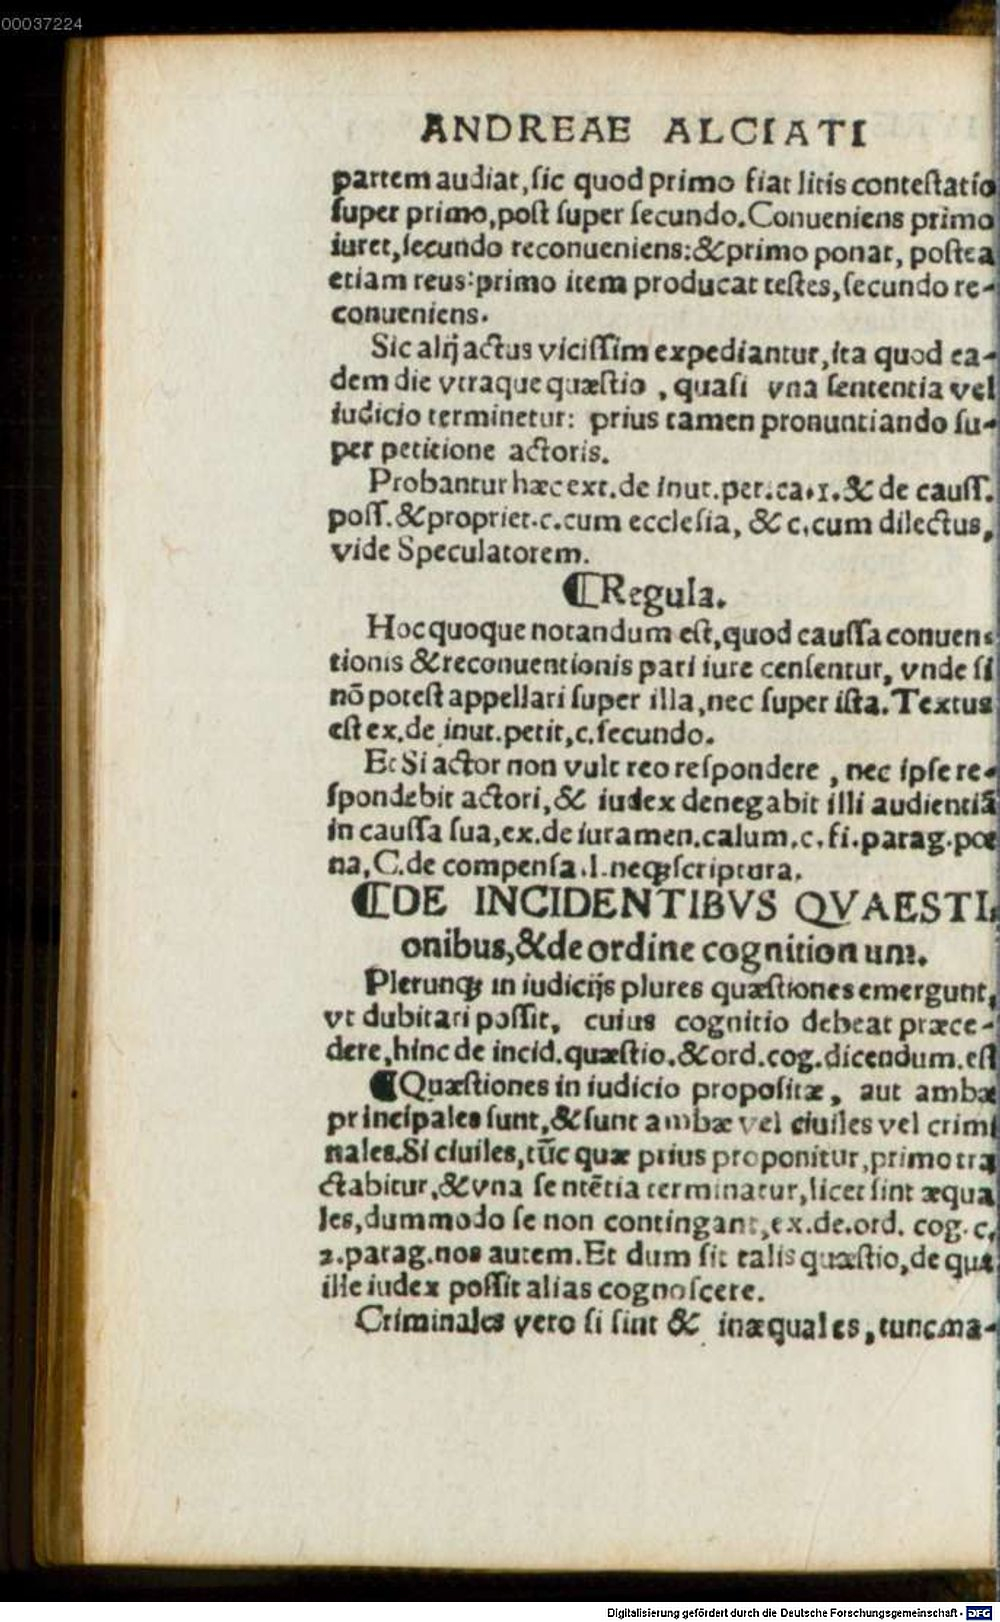 00037224
ANDREAE ALCIATI
partem audiat, ſic quod primo fiat litis conteſtatio
ſuper primo, poſt ſuper ſecundo. Conueniens primo
iuret, ſecundo reconueniens: & primo ponat, poſtea
etiam reus: primo item producat teſtes, ſecundo re-
conueniens.
Sic alij actus viciſſim expediantur, ita quod ea-
dem die vtraque quæſtio, quaſi vna ſententia vel
iudicio terminetur: prius tamen pronuntiando ſu-
per petitione actoris.
Probantur hæc ext. de inut. pet. ca. 1. & de cauſſ.
poſſ. & propriet. c. cum eccleſia, & c. cum dilectus,
vide Speculatorem.
¶ Regula.
Hoc quoque notandum eſt, quod cauſſa conuen-
tionis & reconuentionis pari iure cenſentur, vnde ſi
nõ poteſt appellari ſuper illa, nec ſuper iſta. Textus
eſt ex. de inut. petit, c. ſecundo.
Et Si actor non vult reo reſpondere, nec ipſe re-
ſpondebit actori, & iudex denegabit illi audientiã
in cauſſa ſua, ex. de iuramen. calum. c. fi. parag. pœ
na, C. de compenſa. l. neqꝫ ſcriptura.
¶ DE INCIDENTIBVS QVAESTI-
onibus, & de ordine cognitionum.
Plerunqꝫ in iudicijs plures quæſtiones emergunt,
vt dubitari poſſit, cuius cognitio debeat præce-
dere, hinc de incid. quæſtio. & ord. cog. dicendum. eſt
¶ Quæſtiones in iudicio propoſitæ, aut ambæ
principales ſunt, & ſunt ambæ vel ciuiles vel crimi
nales. Si ciuiles, tũc quæ prius proponitur, primo tra
ctabitur, & vna ſentẽtia terminatur, licet ſint æqua
les, dummodo ſe non contingant, ex. de. ord. cog. c,
2. parag. nos autem. Et dum ſit talis quæſtio, de qua
ille iudex poſſit alias cognoſcere.
Criminales vero ſi ſint & inæquales, tunc ma-
Digitalisierung gefördert durch die Deutsche Forschungsgemeinschaft - DFG